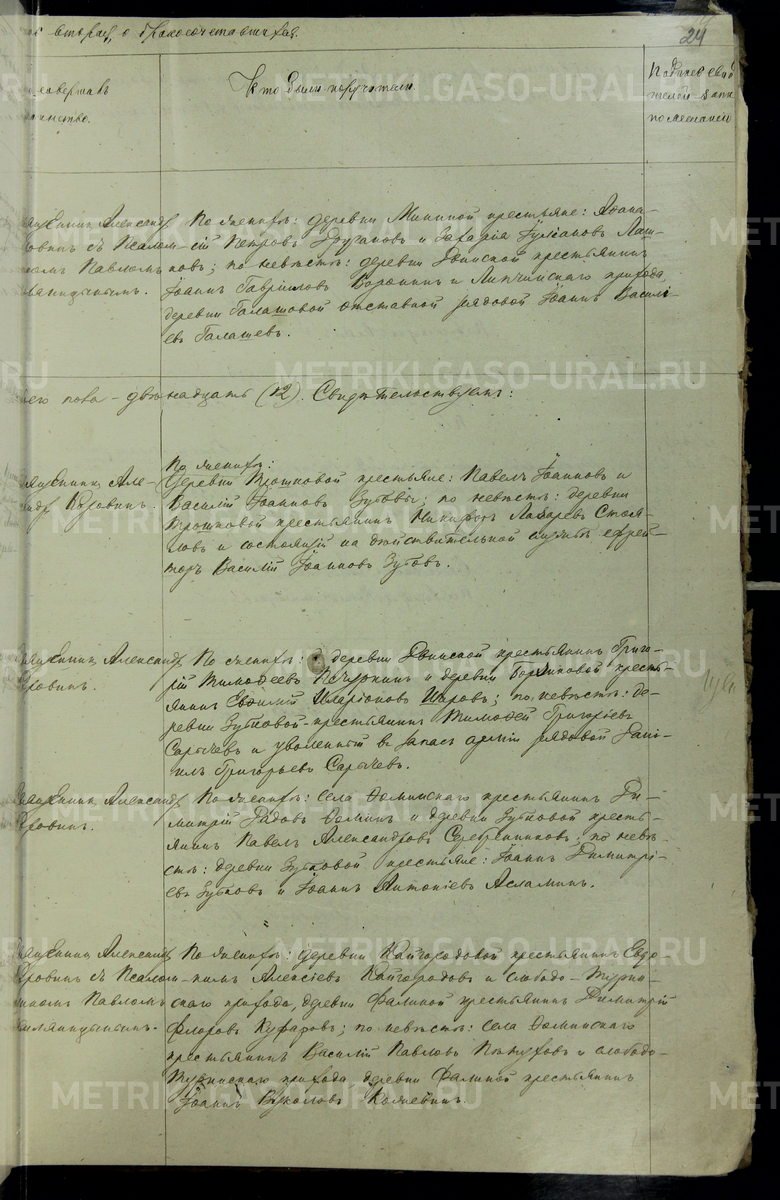 вторая, о бракосочетавшихся.
24
совершалъ
таинство.
Кто были поручители.
Подпись свидѣ-
телей записи
по желанію
Священникъ Александръ
Коровинъ съ Псалом-
щикомъ Павломъ
По женихѣ: деревни Мининой крестьяне: Аѳана-
сій Петровъ и Захарія Іуліановъ Лап-
ковъ; по невѣстѣ: деревни Двинской крестьянинъ
Іоаннъ Гавріиловъ Воронинъ и Липчинскаго прихода
деревни Галашовой отставной рядовой Іоаннъ Василі-
евъ Галашевъ.
его пола - двѣнадцать (12). Свидѣтельствуемъ:
Священникъ Але-
ксандръ Коровинъ.
По женихѣ:
Деревни Трошковой крестьяне: Павелъ Іоанновъ и
Василій Іоанновъ Зубовы; по невѣстѣ: деревни
Трошковой крестьянинъ Никифоръ Лазаревъ
и состоящій на дѣйствительной службѣ ефрей-
торъ Василій Іоанновъ Зубовъ.
Священникъ Александръ
Коровинъ.
По женихѣ: деревни Двинской крестьянинъ Григо-
рій Тимоѳеевъ Печуркинъ и деревни кресть-
янинъ Евѳимій Иларіоновъ Шаровъ; по невѣстѣ: де-
ревни Зубковой крестьянинъ Тимоѳей Григоріевъ
Сарычевъ и уволенный въ запасъ арміи рядовой Дані-
илъ Григорьевъ Сарычевъ.
Священникъ Александръ
Коровинъ.
По женихѣ: села Ѳоминскаго крестьянинъ Ди-
митрій Ѳоминъ и деревни Зубковой кресть-
янинъ Павелъ Александровъ Серебренниковъ; по невѣ-
стѣ: деревни Зубковой крестьяне: Іоаннъ Димитрі-
евъ Зубковъ и Іоаннъ Антоніевъ Асламинъ.
Священникъ Александръ
Коровинъ съ Псалом-
щикомъ Павломъ
По женихѣ: деревни Кайгородовой крестьянинъ Евдо-
кимъ Алексіевъ Кайгородовъ и Слободо-Турин-
скаго прихода, деревни Фалиной крестьянинъ Димитрій
Флоровъ Куфаровъ; по невѣстѣ: села Ѳоминскаго
крестьянинъ Василій Павловъ Пѣтуховъ и Слободо-
Туринскаго прихода деревни Фалиной крестьянинъ
Іоаннъ Вуколовъ
METRIKI.GASO-URAL.RU